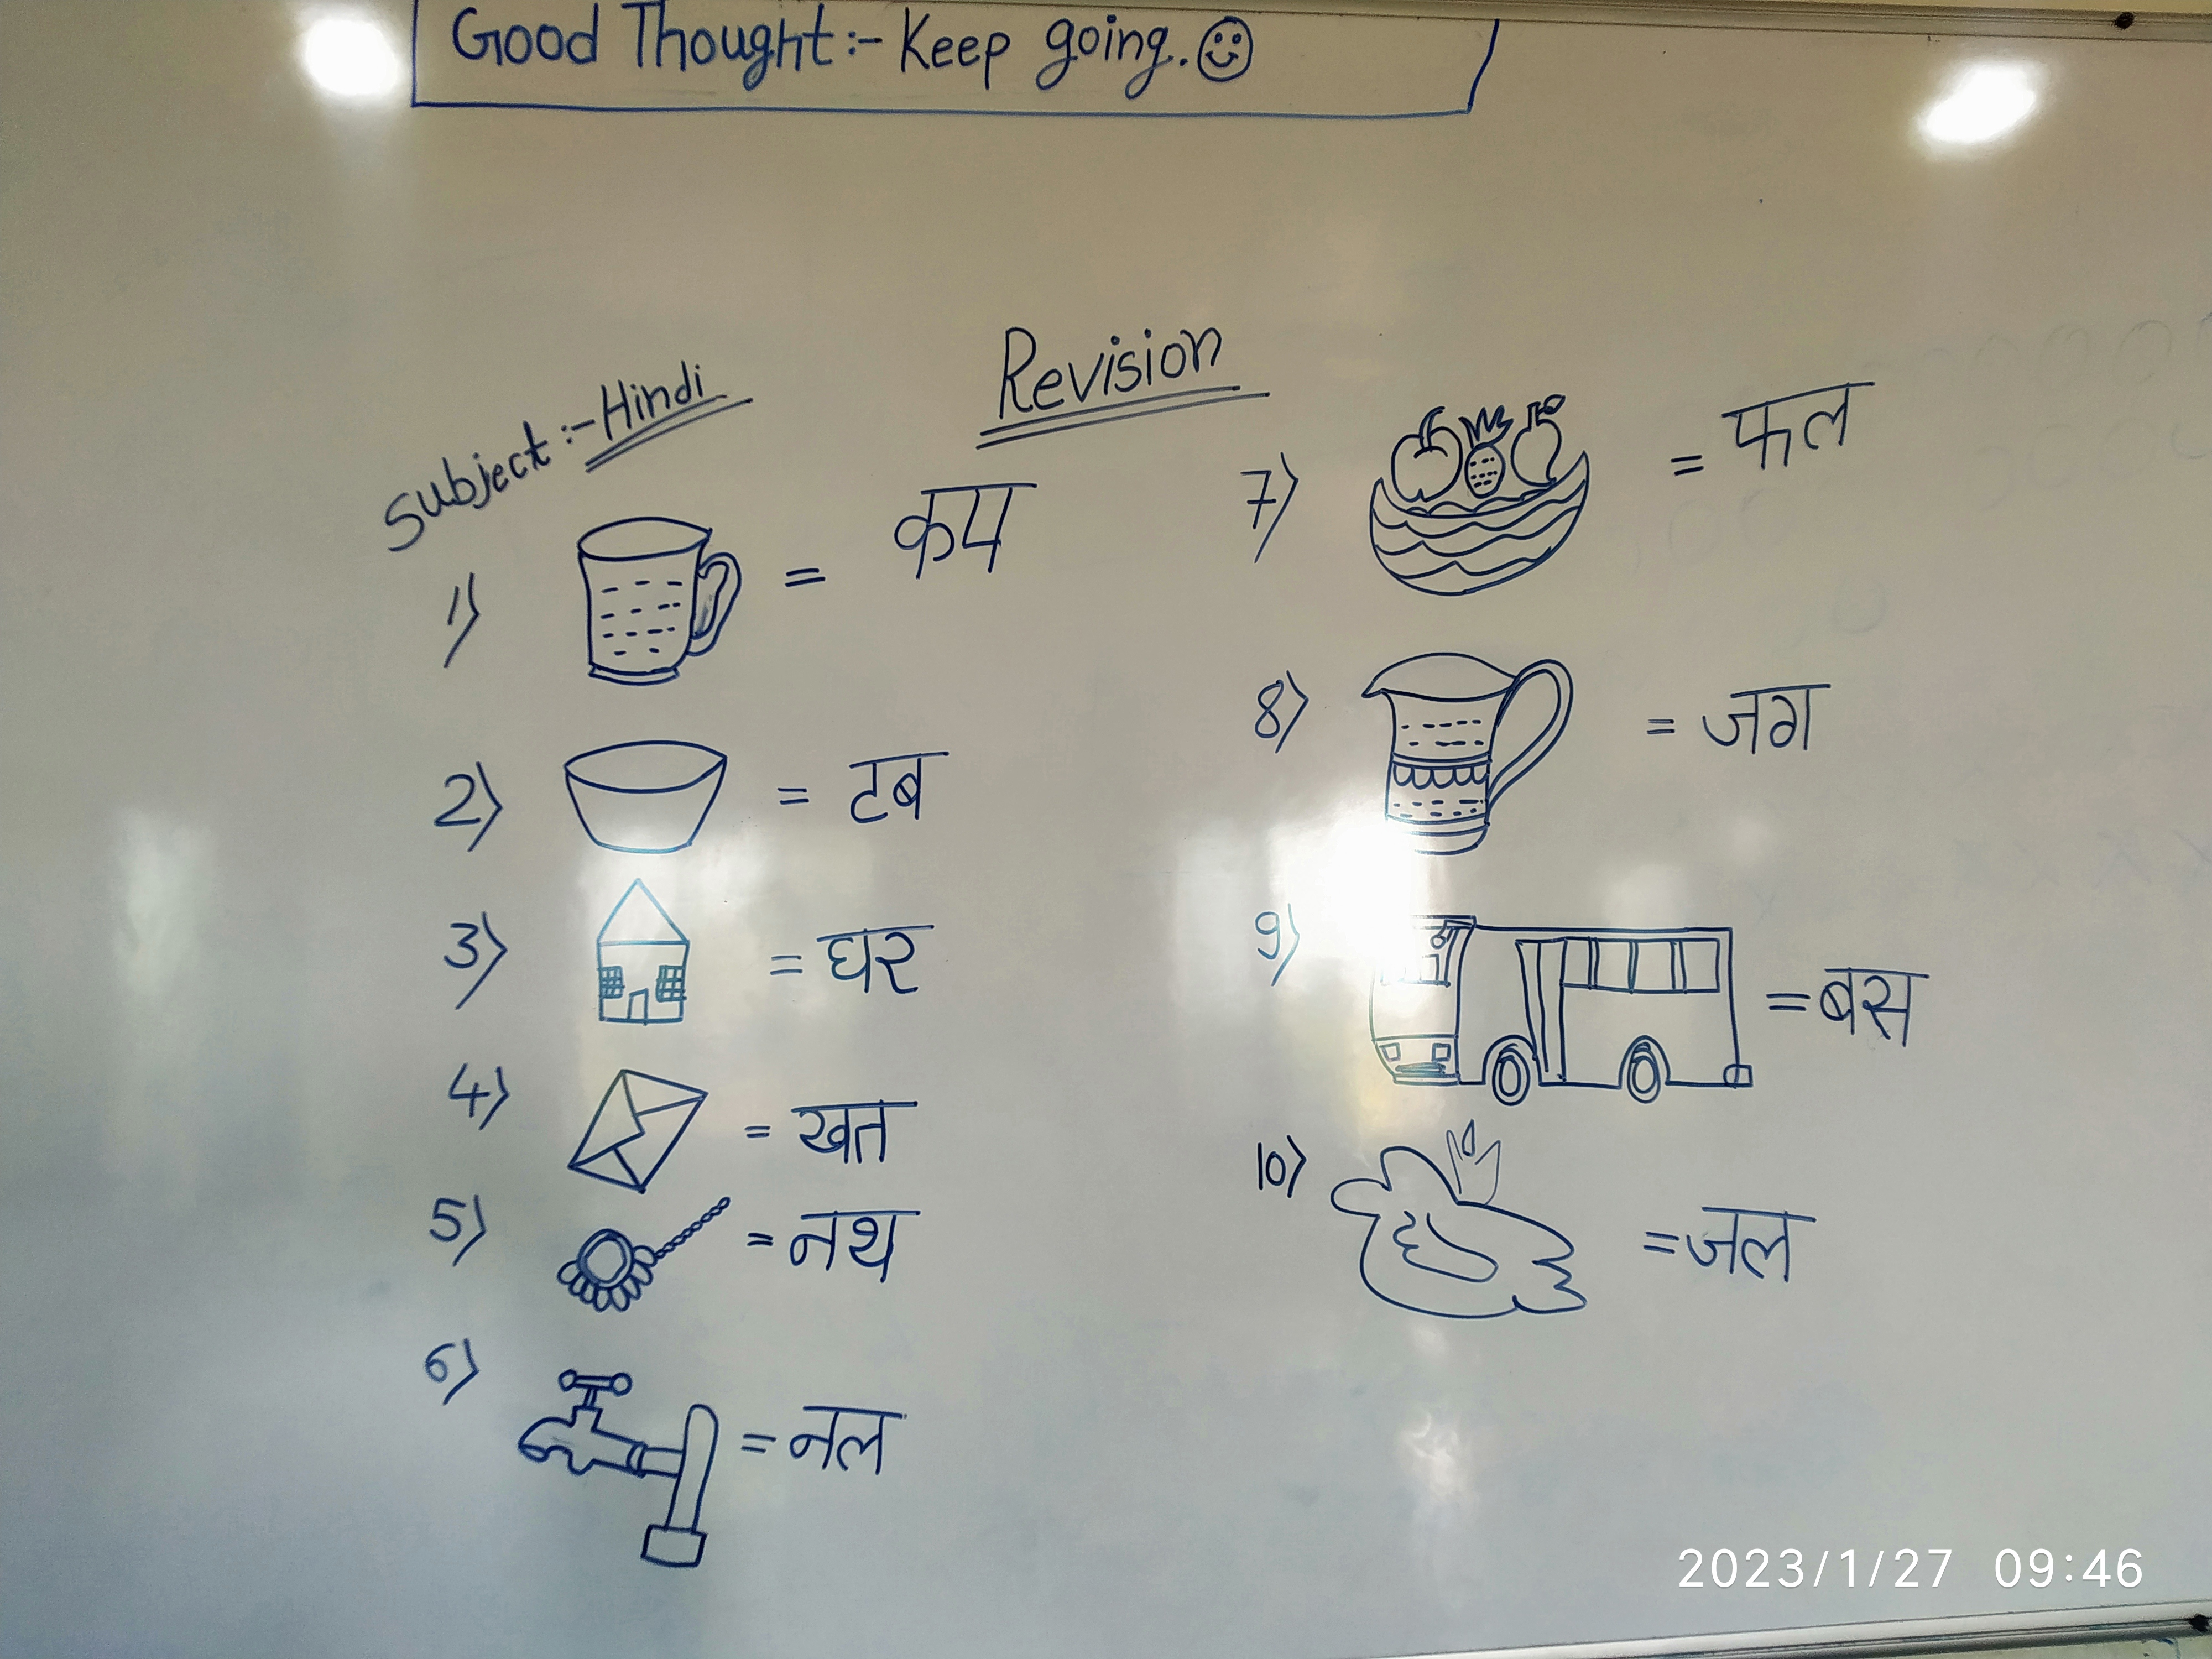 Good Thought:- Keep going..
Revision
Subject:- Hindi
1) = कप
2) = टब
3) = घर
4) = खत
5) = नथ
6) = नल
7) = फल
8) = जग
9) = बस
10) = जल
2023/1/27 09:46